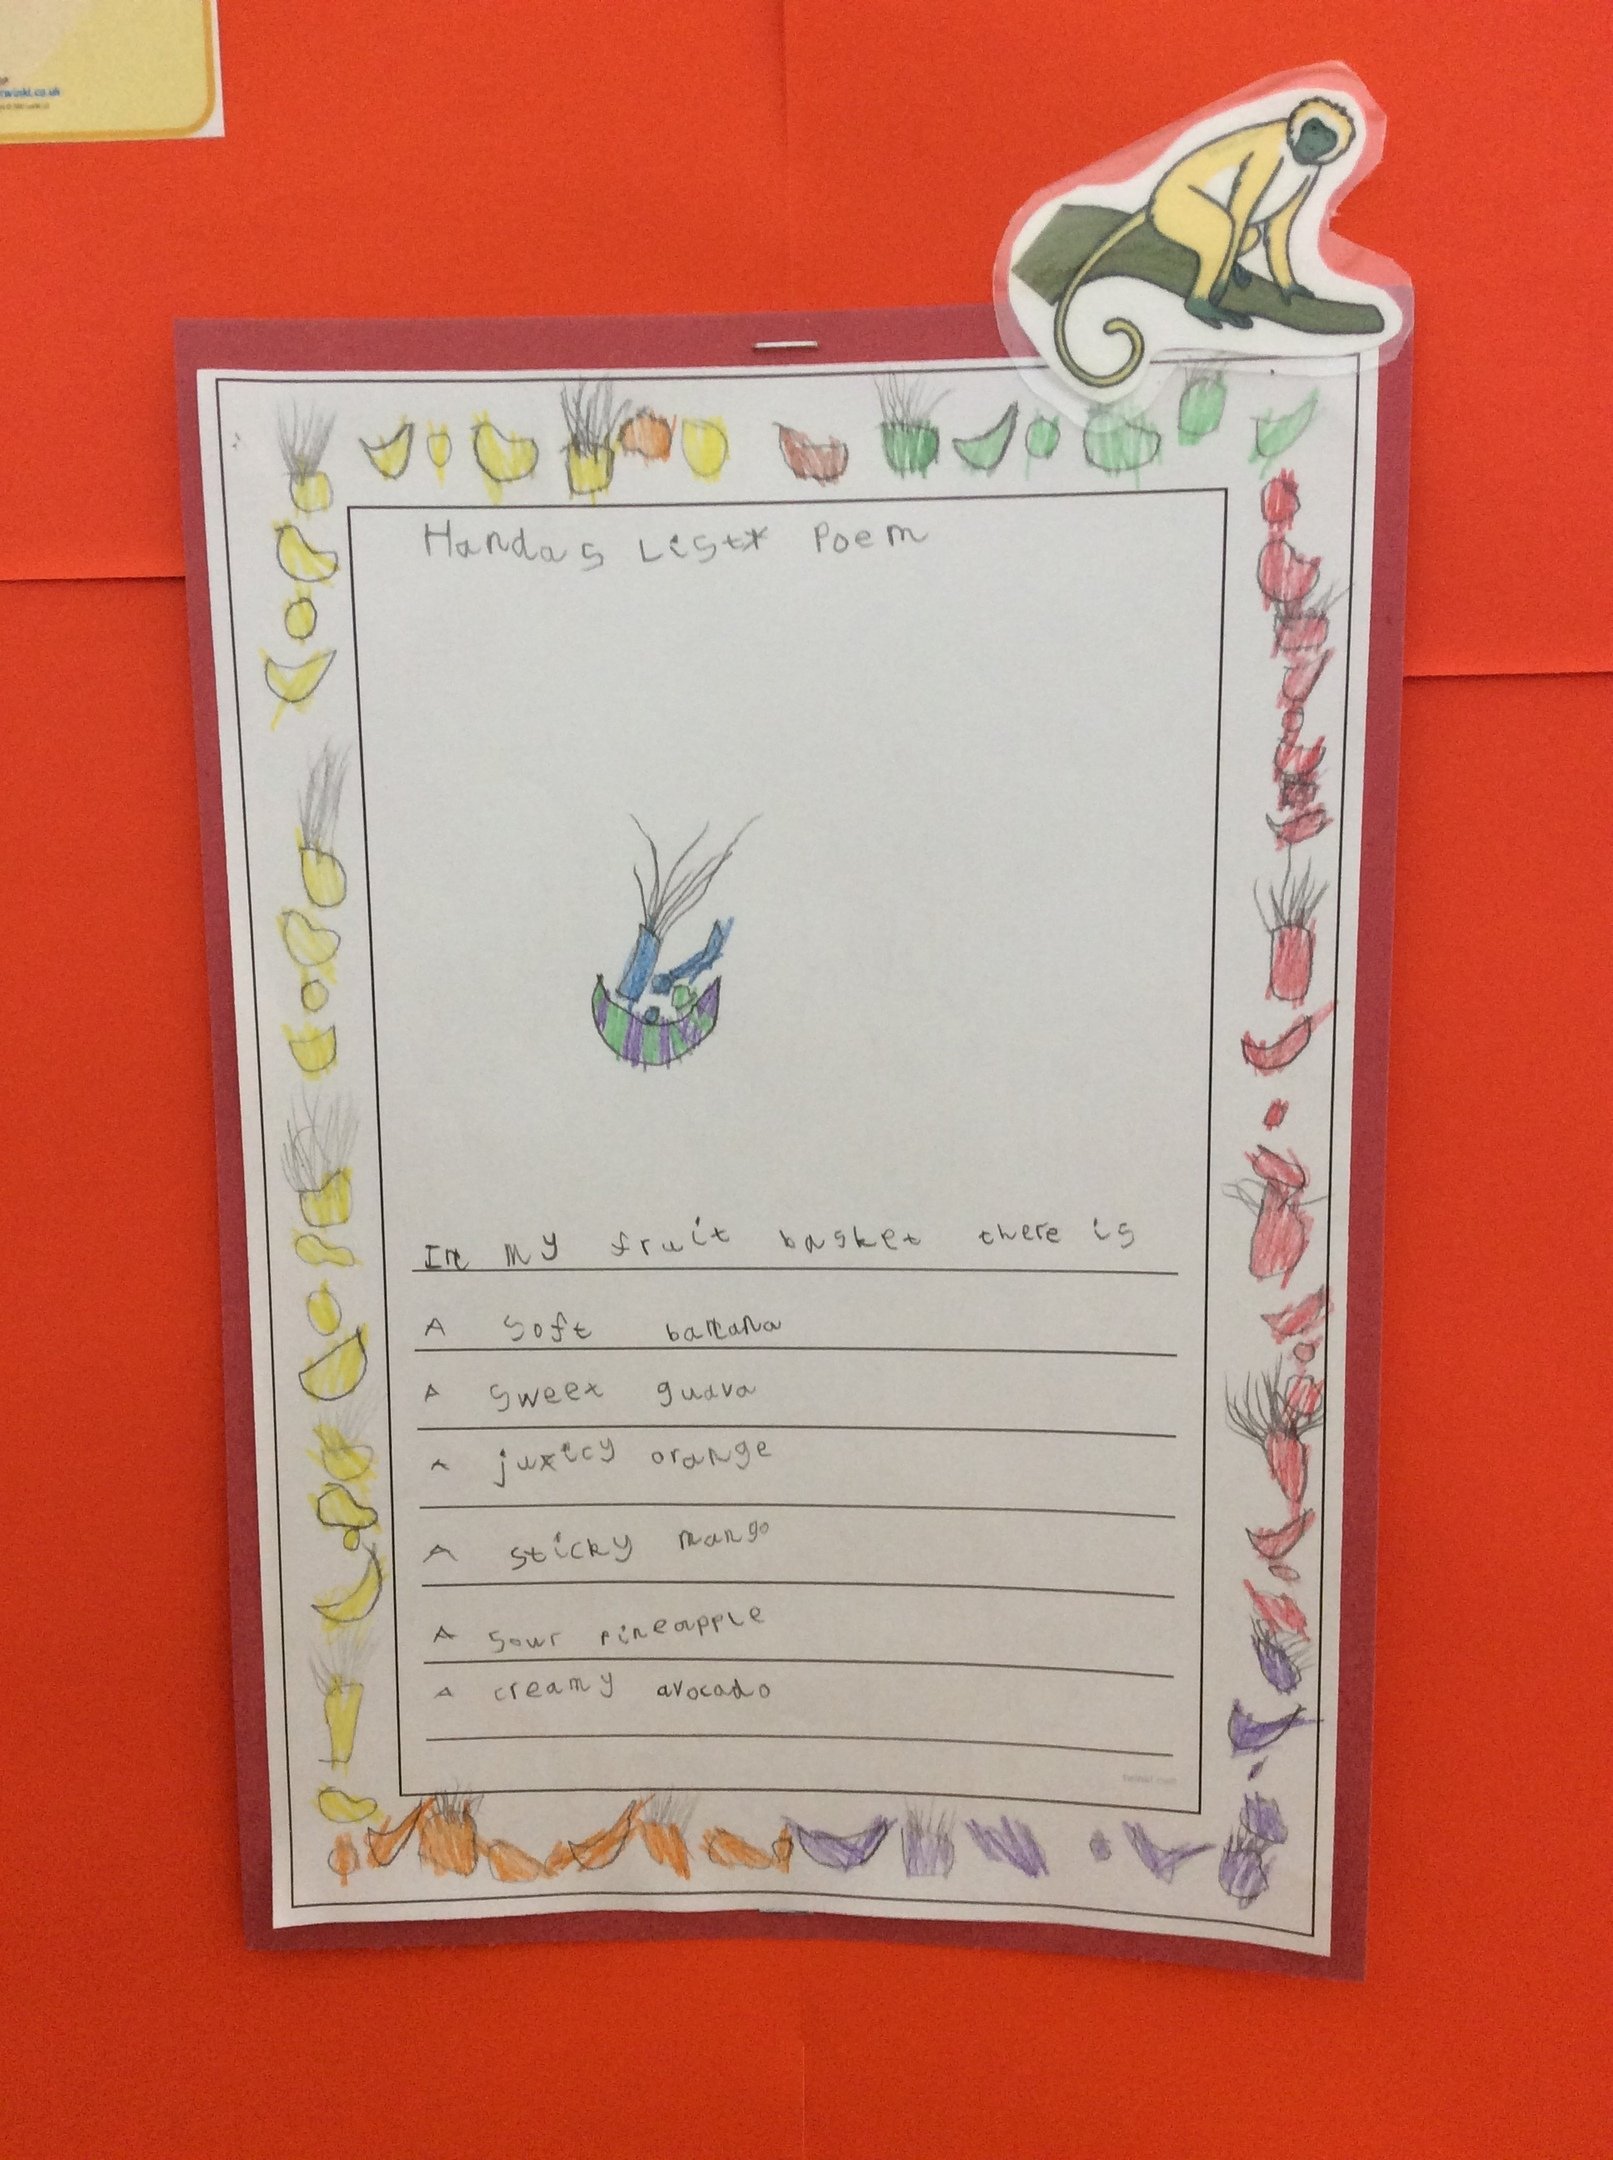 twinkl.co.uk
Handas List Poem
In my fruit basket there is
A soft banana
A sweet guava
A juicy orange
A sticky mango
A sour pineapple
A creamy avocado
twinkl.com